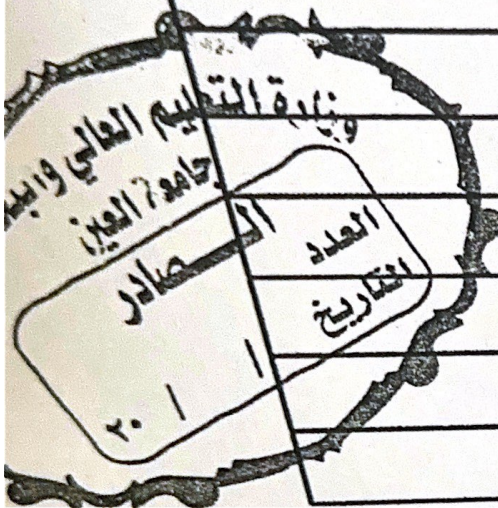 وزارة التعليم العالي والبحث
جامعة العين
الــصادر
العدد
التاريخ / / ٢٠